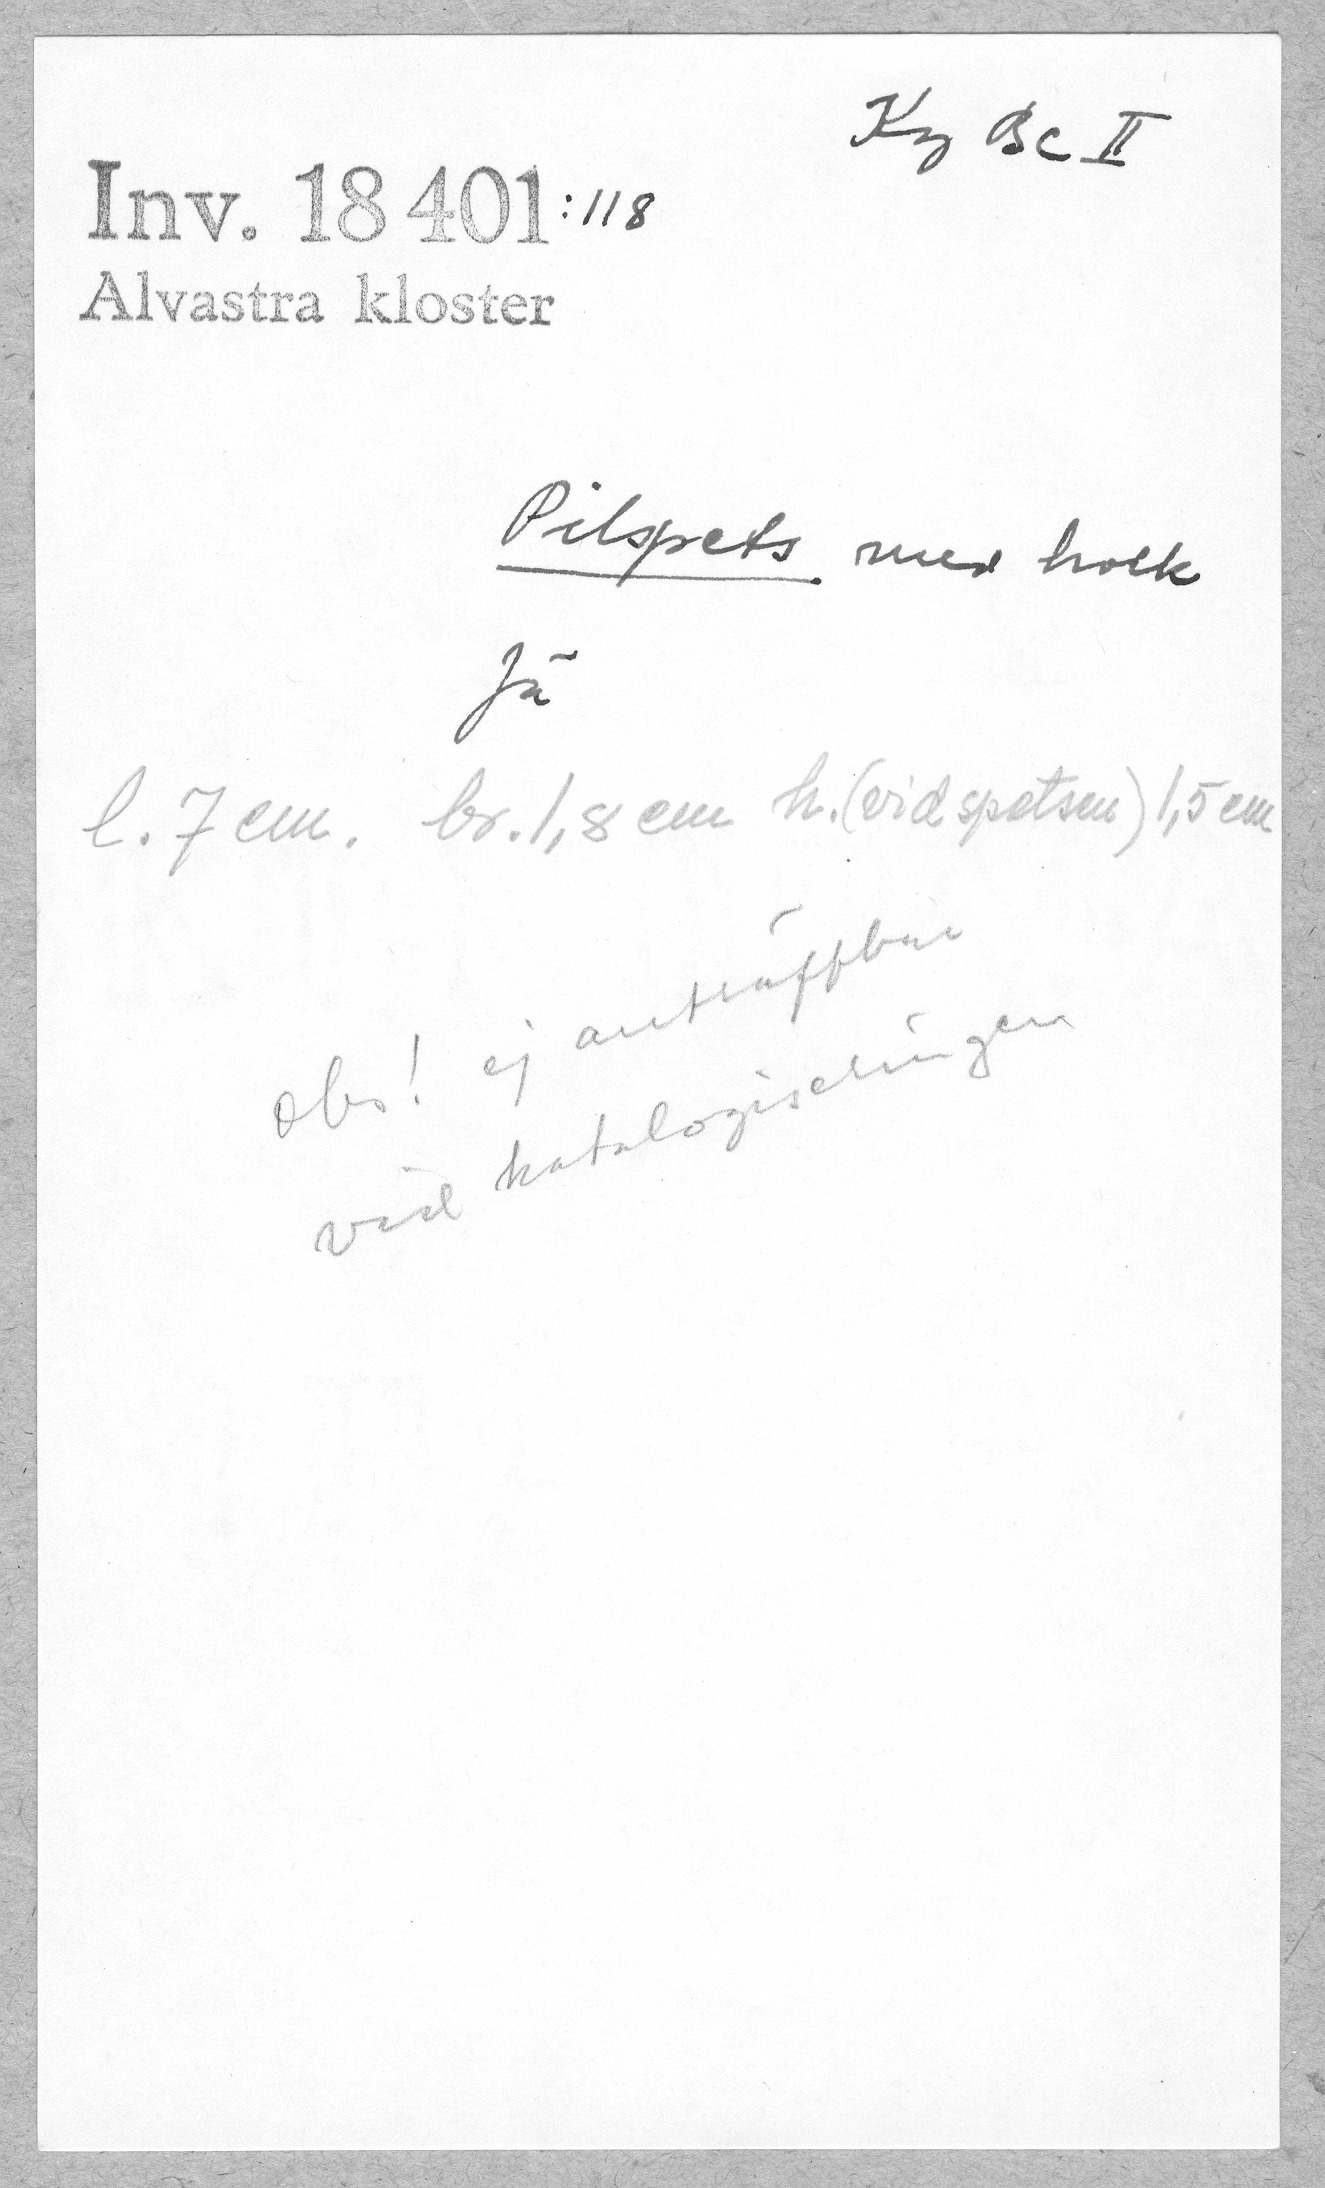 Ky Bc II
Inv. 18 401:118
Alvastra kloster
Pilspets med holk
Jä
l. 7 cm. br. 1,8 cm h. (vid spetsen) 1,5 cm
Obs! ej anträffbar
vid katalogiseringen